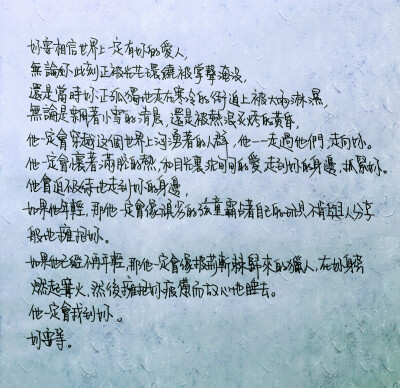 妳要相信世界上一定有妳的愛人，
無論妳此刻正被光芒環繞被掌聲淹沒，
還是當時妳正孤獨地走在寒冷的街道上被大雨淋濕，
無論是飄著小雪的清晨，還是被熱浪炙烤的黃昏，
他一定會穿越這個世界上洶湧著的人群，他一一走過他們，走向妳。
他一定會懷著滿腔的熱，和目光裏沉甸甸的愛，走到妳的身邊，抓緊妳。
他會迫不及待地走到妳的身邊，
如果他年輕，那他一定會像頑劣的孩童霸占著自己的玩具不肯與人分享
般地擁抱妳。
如果他已經不再年輕，那他一定會像披荊斬棘歸來的獵人，在妳身旁
燃起篝火，然後擁抱妳疲憊而放心地睡去。
他一定會找到妳。
妳要等。